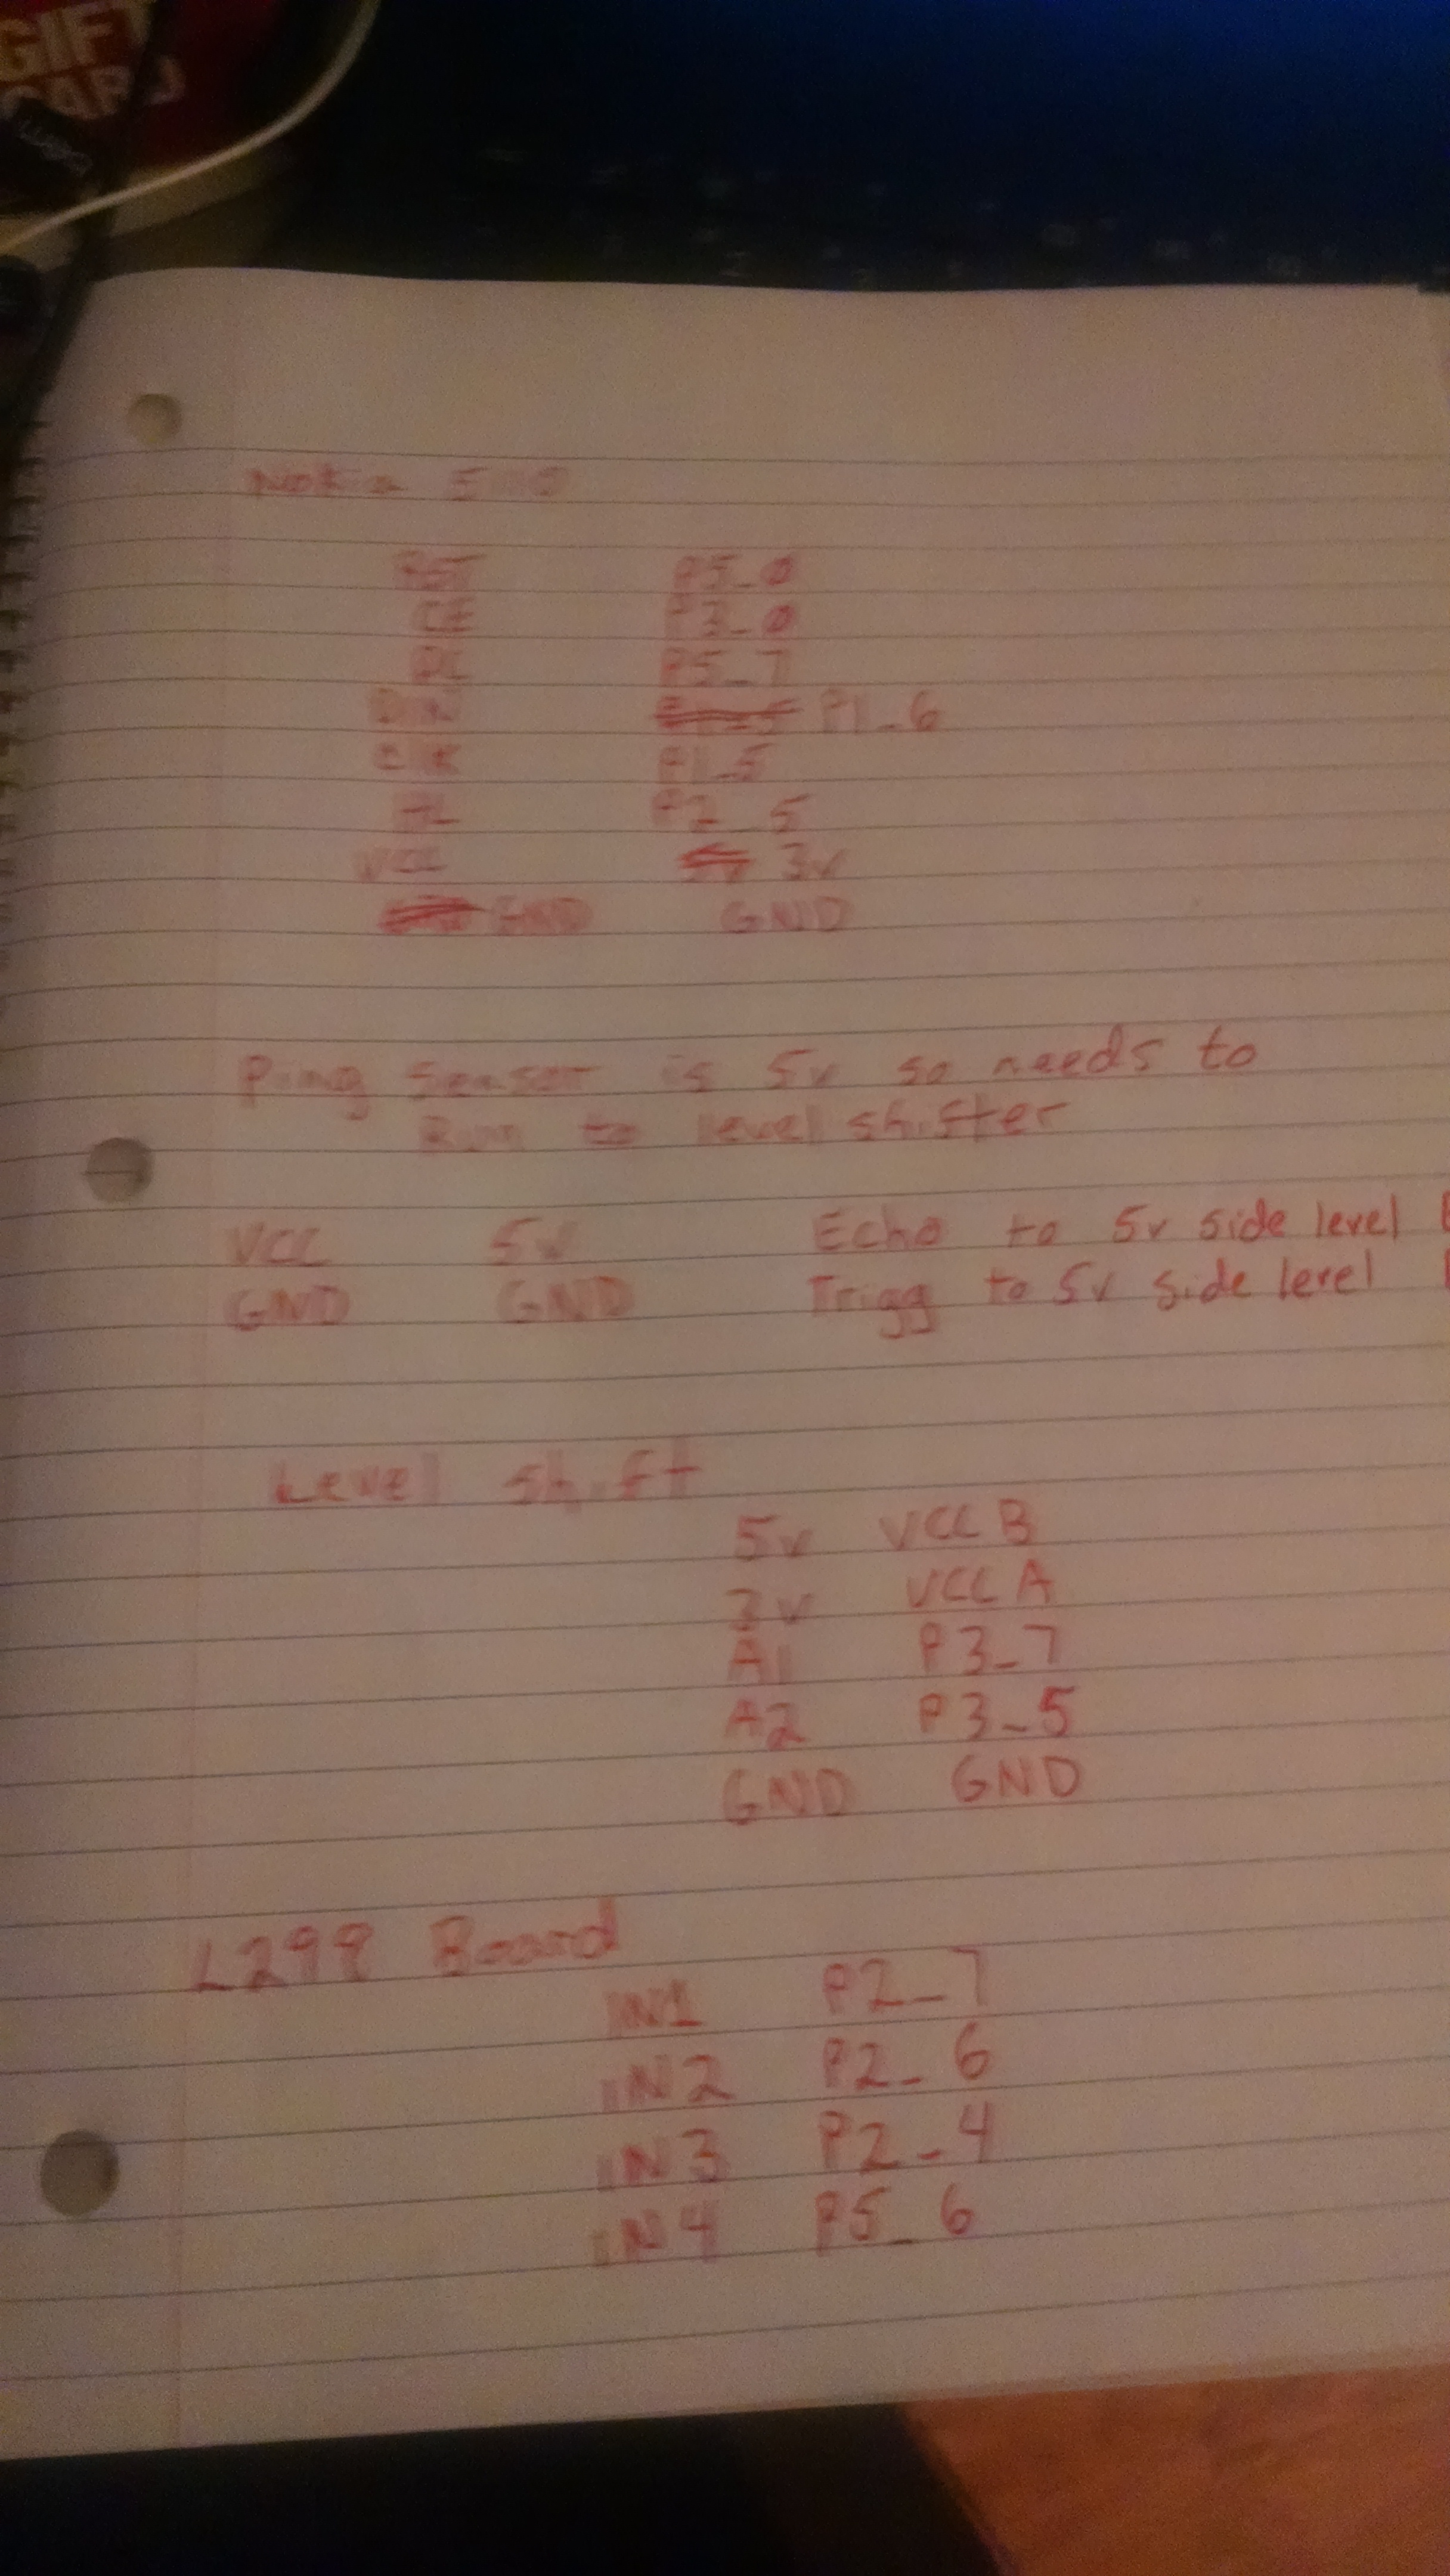 GIFT
CARD
Nokia 5110
RST P5_0
CE P3_0
DC P5_7
DIN P1_6
CLK P1_5
P2_5
VCC 3v
GND GND
Ping Sensor is 5v so needs to
Run to level shifter
VCC 5v Echo to 5v side level
GND GND Trigg to 5v side level
Level shift
5v VCC B
3v VCC A
A1 P3_7
A2 P3_5
GND GND
L298 Board
IN1 P2_7
IN2 P2_6
IN3 P2_4
IN4 P5_6